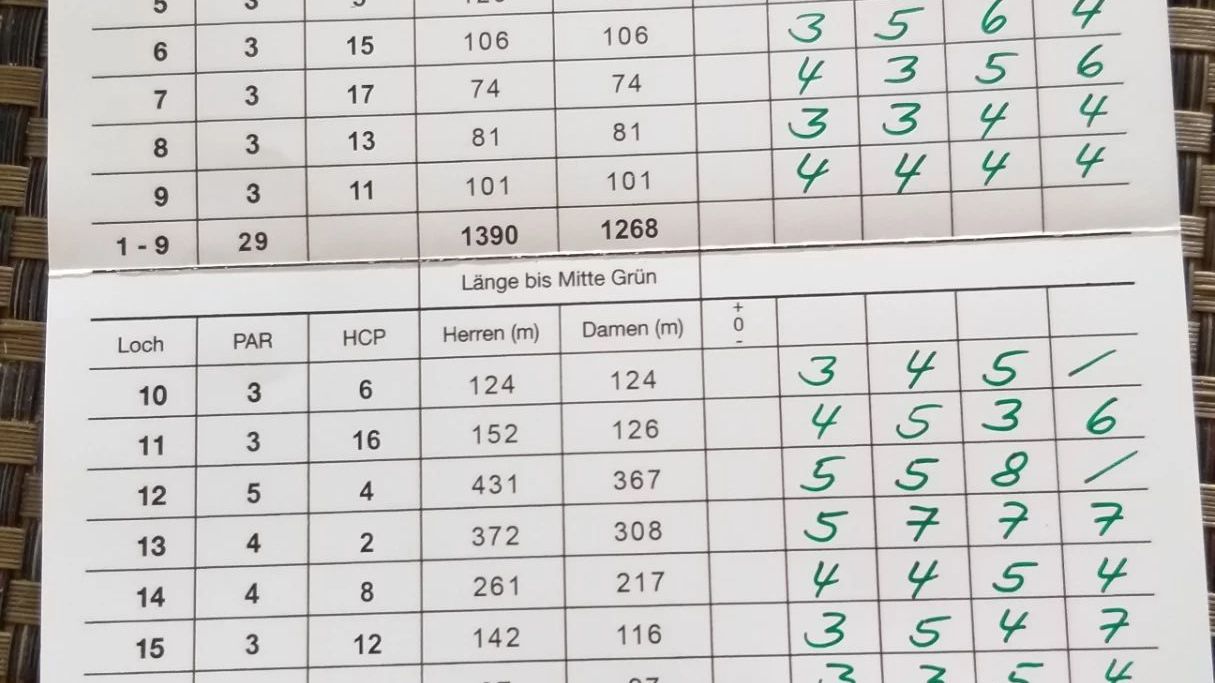 5 3
6 3 15 106 106 3 5 6 4
7 3 17 74 74 4 3 5 6
8 3 13 81 81 3 3 4 4
9 3 11 101 101 4 4 4 4
1 - 9 29 1390 1268
Länge bis Mitte Grün
Loch PAR HCP Herren (m) Damen (m) + 0 -
10 3 6 124 124 3 4 5 /
11 3 16 152 126 4 5 3 6
12 5 4 431 367 5 5 8 /
13 4 2 372 308 5 7 7 7
14 4 8 261 217 4 4 5 4
15 3 12 142 116 3 5 4 7
3 3 5 4